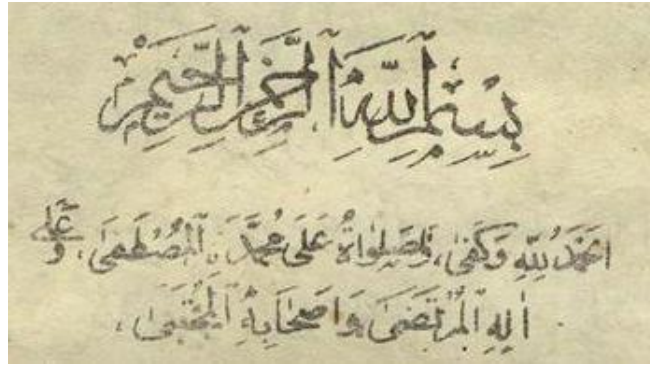 بِسْمِ اللّٰهِ الرَّحْمٰنِ الرَّحِيْمِ
اَلْحَمْدُ لِلّٰهِ وَكَفٰى، وَالصَّلٰوةُ عَلٰى مُحَمَّدَ ۨ الْمُصْطَفٰى، وَعَلٰى
اٰلِهِ الْمُرْتَضٰى وَاَصْحَابِهِ الْمُجْتَبٰى،